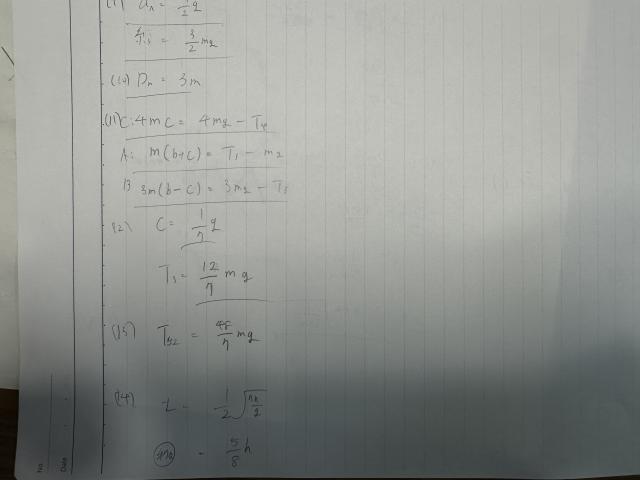 a_n = 1/2 g
= 3/2 mg
(10) D_n = 3m
(11) C: 4mC = 4mg - T_4
A: m(b+c) = T_3 - mg
B 3m(b-c) = 3mg - T_3
12) C = 1/7 g
T_3 = 12/7 mg
(13) = 48/7 mg
(14) t = 1/2
= 5/8 h
No.
Date